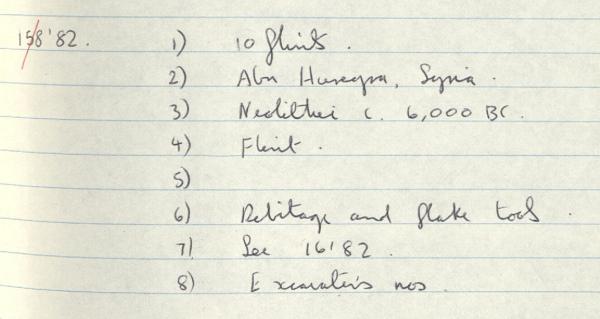 158'82. 1) 10 flints.
2) Abu Hureyra, Syria.
3) Neolithic c. 6,000 BC.
4) Flint.
5)
6) Debitage and flake tools.
7) See 16'82.
8) Excavator's nos.